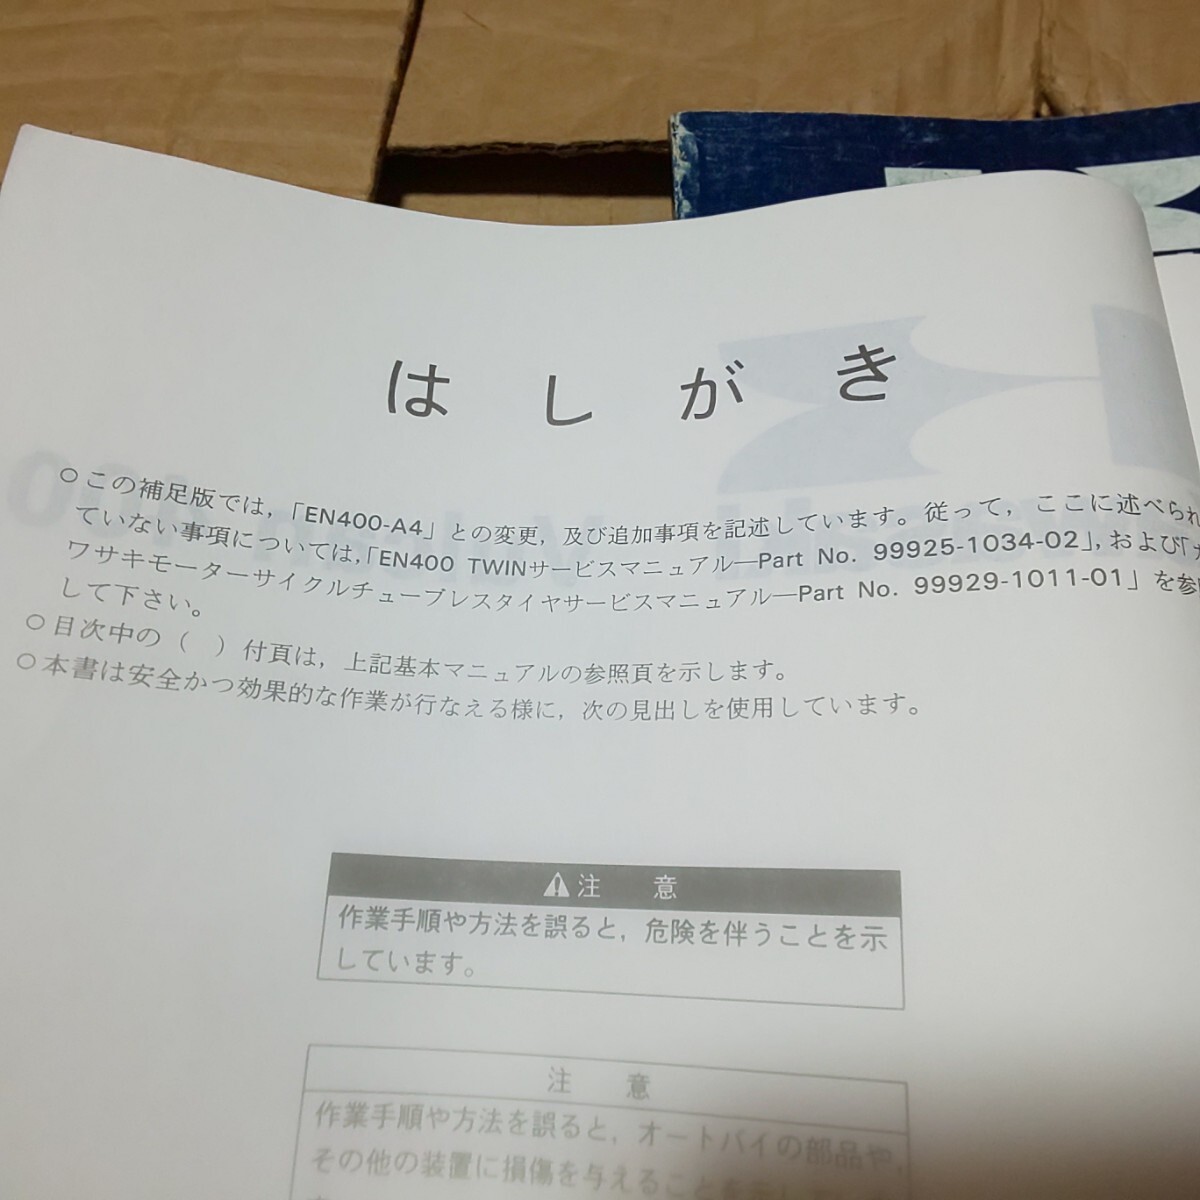 はしがき
○この補足版では,「EN400-A4」との変更,及び追加事項を記述しています。従って,ここに述べられ
ていない事項については,「EN400 TWINサービスマニュアル—Part No. 99925-1034-02」,および「カ
ワサキモーターサイクルチューブレスタイヤサービスマニュアル—Part No. 99929-1011-01」を参照
して下さい。
○目次中の( )付頁は,上記基本マニュアルの参照頁を示します。
○本書は安全かつ効果的な作業が行なえる様に,次の見出しを使用しています。
⚠注 意
作業手順や方法を誤ると,危険を伴うことを示
しています。
注 意
作業手順や方法を誤ると,オートバイの部品や,
その他の装置に損傷を与えることを示し